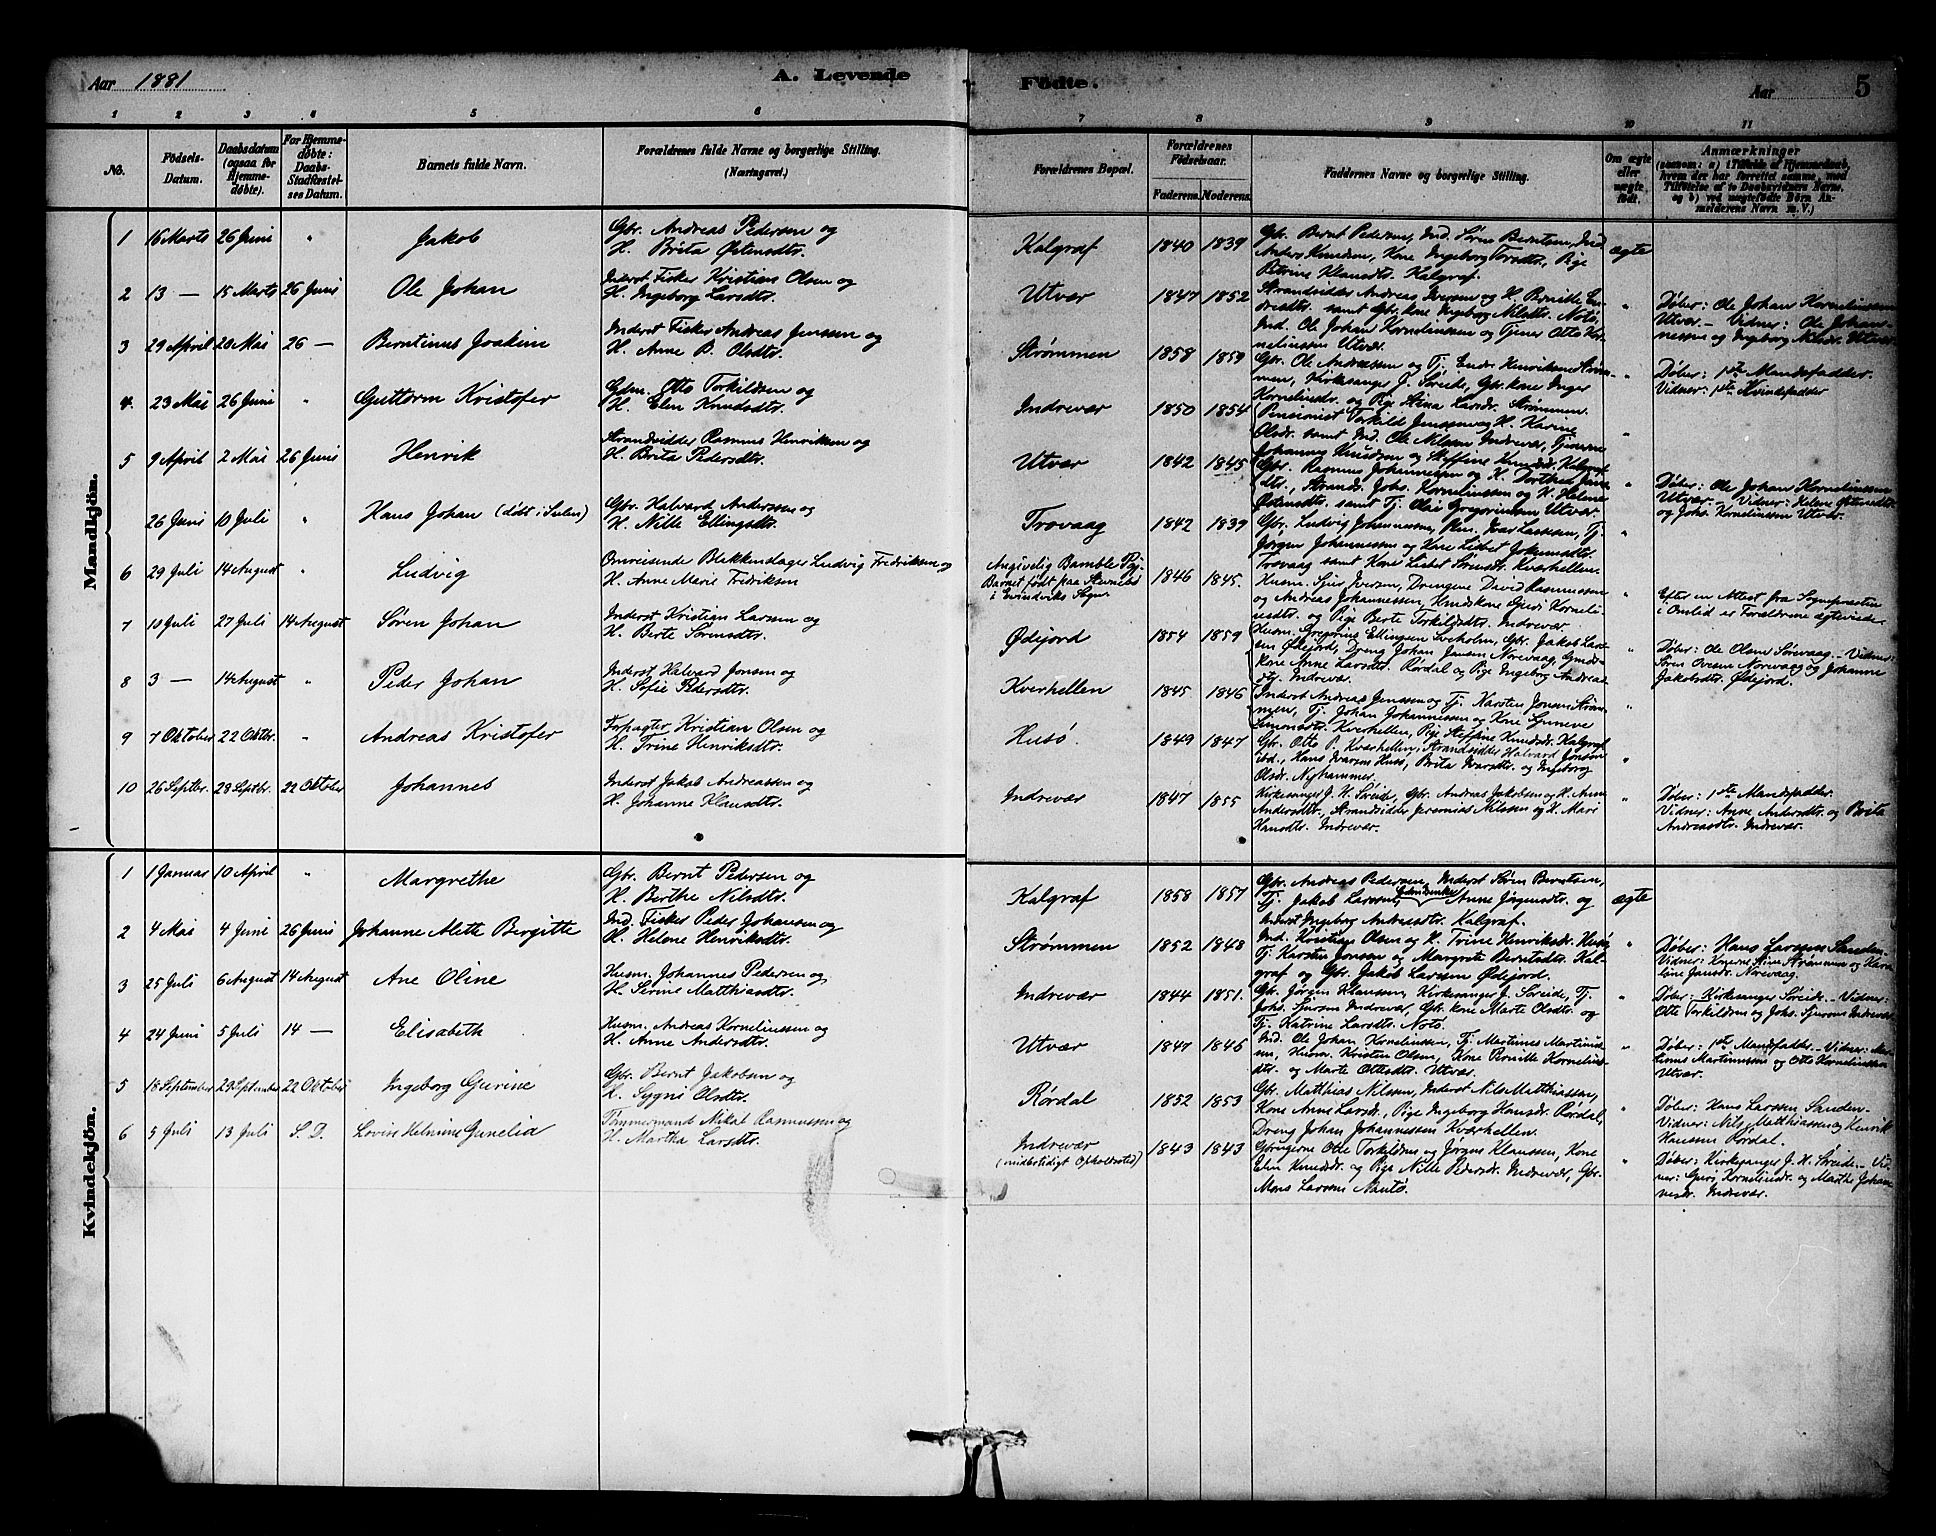 Aar 1881
A. Levende
Fødte.
Aar
5
1 2 3 4 5 6 7 8 9 10 11
No.
Fødsels-Datum.
Daabsdatum (ogsaa for Hjemmedøbte).
For Hjemmedøbte: Daabs-Stadfæstelses Datum.
Barnets fulde Navn.
Forældrenes fulde Navne og borgerlige Stilling. (Næringsvei.)
Forældrenes Bopæl.
Forældrenes Fødselsaar.
Faderens. Moderens.
Faddernes Navne og borgerlige Stilling.
Om ægte eller uægte født.
Anmærkninger
(saasom: a) i Tilfælde af Hjemmedaab, hvem der har forrettet samme, med Tilføielse af to Daabsvidners Navne, og b) ved uægtefødte Børn Anmelderens Navn m. V.)
Mandkjön.
1 16 Marts 26 Juni " Jakob
Gbr. Andreas Pedersen og
H. Brita Østensdtr.
Kalgraf 1840 1839
Gbr. Bernt Pedersen, Ind. Sørne Berntsen, Ind.
Anders Knudsen, Kone Ingeborg, Pige
Petrine Klausdtr. Kalgraf.
ægte
2 13 — 15 Marts 26 Juni Ole Johan
Inderst Fisker Kristian Olsen og
H. Ingeborg Larsdtr.
Utvær 1847 1852
Strandsidder Andreas Iversen og H. Pernille
samt Gbr. kone Ingeborg Nilsdtr. Notø,
Ind. Ole Johan Kornelinssen og Tjener Otto Kor-
nelinssen Utvær.
"
Døber: Ole Johan Kornelinssen
Utvær — Vidner: Ole Johan-
nessen og Ingeborg Nilsdr. Utvær
3 29 April 20 Mai 26 — Berntinus Joakim
Inderst Fisker Andreas Jenssen og
H. Anne B. Olsdtr.
Strømmen 1858 1859
Gbr. Ole Andreassen og Tj. Endr. Henriksen Strøm-
men, Kirkesanger J. Søreide, Gbr. kone Inger
Kornelinsdr. og Pige Stina Larsdr. Strømmen.
"
Døber: 1ste Mandsfadder.
Vidner: 1ste Kvindefadder
4. 23 Mai 26 Juni " Guttorm Kristofer
Gdm. Otto Torkildsen og
H. Elen Knudsdtr.
Indrevær 1850 1854
Pensionist Torkild Jenssen og H. Karine
Olsdr. samt Ind. Ole Nilssen Indrevær, Tjenerne
Johannes Knudsen og Steffine Knudsdr. Kalgraf
"
5 9 April 2 Mai 26 Juni Henrik
Strandsidder Rasmus Henriksen og
H. Brita Pedersdtr.
Utvær 1842 1845
Gbr. Rasmus Johannessen og H. Dorthea Jens-
dtr., Strands. Johs. Kornelinssen og H. Helene
Østensdtr. samt Tj. Olai Gregorinssen Utvær.
"
Døber: Ole Johan Kornelinssen
Utvær — Vidner: Helene Østensdtr.
og Johs. Kornelinssen Utvær.
26 Juni 10 Juli " Hans Johan (døbt i Sulen)
Gbr. Halvard Anderssen og
H. Nille Ellingsdtr.
Trovaag 1842 1839
Gbr. Ludvig Johannessen, Pen. Ivar Larssen, Tj.
Jørgen Johannessen og Kone Lisbet Johannsdtr.
Trovaag samt Kone Lisbet Simonsdr. Kverhellen.
"
6 29 Juli 14 August " Ludvig
Omreisende Blikkenslager Ludvig Fredriksen og
H. Anne Marie Fredriksen
Angivelig Bamble Pgj.
Barnet født paa Steinebø
i Evindviks Sogn.
1846 1845.
Husm. Sjur Iversen, Drengene David Rasmussen
og Andreas Johannessen, Husmdskone Gjøri Korneli-
usdtr. og Pige Berte Torkildsdtr. Indrevær.
"
Efter en Attest fra Sognepræsten
i Omlid er Forældrene ægteviede.
7 10 Juli 27 Juli 14 August Søren Johan
Inderst Kristian Larsen og
H. Berte Sørensdtr.
Ødejord 1854 1859
Husm. Gregorius Ellingsen Losholm, Gbr. Jakob Lars-
sen Ødejord, Dreng Johan Jansen Norevaag, Gmds-
kone Anne Larsdtr. Rørdal og Pige Ingeborg Andreas-
dtr. Indrevær.
"
Døber: Ole Olsen Sørevaag. — Vidner:
Søren Ovesen Norevaag og Johanne
Jakobsdtr. Ødejord.
8 3 — 14 August " Peder Johan
Inderst Halvard Jonsen og
H. Sofie Pedersdtr.
Kverhellen 1845 1846
Inderst Andreas Jenssen og Tj. Karsten Jonsen Strøm-
men, Tj. Johan Johannessen og Kone Synneve
Simonsdtr. Kverhellen, Pige Steffine Knudsdr. Kalgraf
"
9 7 Oktober 22 Oktbr. " Andreas Kristofer
Forpagter Kristian Olsen og
H. Trine Henriksdtr.
Husø. 1849 1847
Gbr. Otto P. Kverhellen, Strandsidder Halvard Jonsen
ibd., Hans Ivarsen Husø, Brita Ivarsdtr. og Ingeborg
Olsdr. Nyhammer.
"
10 26 Septbr. 28 Septbr. 22 Oktober Johannes
Inderst Jakob Andreassen og
H. Johanne Klausdtr.
Indrevær 1847 1855
Kirkesanger J. H. Søreide, Gbr. Andreas Jakobsen og H. Anne
Andersdtr., Strandsidder Jeremias Nilssen og H. Mari
Hansdtr. Indrevær.
"
Døber: 1ste Mandsfadder.
Vidner: Anne Andersdtr. og Brita
Andreasdtr. Indrevær.
Kvindekjön.
1 1 Januar 10 April " Margrethe
Gbr. Bernt Pedersen og
H. Berthe Nilsdtr.
Kalgraf 1858 1857
Gbr. Andreas Pedersen, Inderst Søren Berntsen,
Tj. Jakob Larssen, Anne Jørgensdtr. og
Inderst Ingeborg Andreasdtr. Kalgraf.
ægte
2 4 Mai 4 Juni 26 Juni Johanne Alette Bergitte
Ind. Fisker Peder Johansen og
H. Helene Henriksdtr.
Strømmen 1852 1848
Ind. Kristian Olsen og H. Trine Henriksdr. Husø
Tj. Karsten Jonsen og Margrete Berntsdtr. Kal-
graf og Gbr. Jakob Larssen Ødejord.
"
Døber: Hans Larssen Sanden —
Vidner: Konerne Stine Strømmen og Karo-
line Jansdr. Norevaag.
3 25 Juli 6 August 14 August Ane Oline
Husm. Johannes Pedersen og
H. Serine Matthiasdtr.
Indrevær 1844 1851.
Gbr. Jørgen Klaussen, Kirkesanger J. Søreide, Tj.
Johs. Sjursen Indrevær, Gbr. kone Marte Olsdtr. og
Tj. Katrine Larsdtr. Notø.
"
Døber: Kirkesanger Søreide. — Vidner:
Otte Torkildsen og Johs. Sjursen Indrevær
4 24 Juni 5 Juli 14 — Elisabeth
Husm. Andreas Kornelinssen og
H. Anne Andersdtr.
Utvær 1847 1846
Ind. Ole Johan Kornelinssen, Tj. Martines Martinus-
sen, Husm. Kristen Olsen, Kone Pernille Kornelius-
dtr. og Marte Ottesdtr. Utvær.
"
Døber: 1ste Mandsfadder — Vidner: Mar-
tinus Martinussen og Otto Kornelinssen
Utvær.
5 18 September 29 September 22 Oktober Ingeborg Gurine
Gbr. Bernt Jakobsen og
H. Sygni Olsdtr.
Rørdal 1852 1853
Gbr. Matthias Nilssen, Inderst Nils Matthiassen,
Kone Anne Larsdr., Pige Ingeborg Hansdr. Rørdal,
Dreng Johan Johannessen Kverhellen.
"
Døber: Hans Larssen Sanden —
Vidner: Nils Matthiassen og Henrik
Hanssen Rørdal.
6 5 Juli 13 Juli S. D. Lovise Helmine Gunelia
Tømmermand Mikal Rasmussen og
H. Martha Larsdtr.
Indrevær
(midlertidigt Opholdssted)
1843 1843
Gbrugerne Otte Torkildsen og Jørgen Klaussen, Kone
Elen Knudsdr. og Pige Nille Pedersdr. Indrevær, Gbr.
Mons Larsen Nautø.
"
Døber: Kirkesanger J. H. Søreide. — Vid-
ner: Gjøri Kornelinsdr. og Marthe Johan-
nesdr. Indrevær.